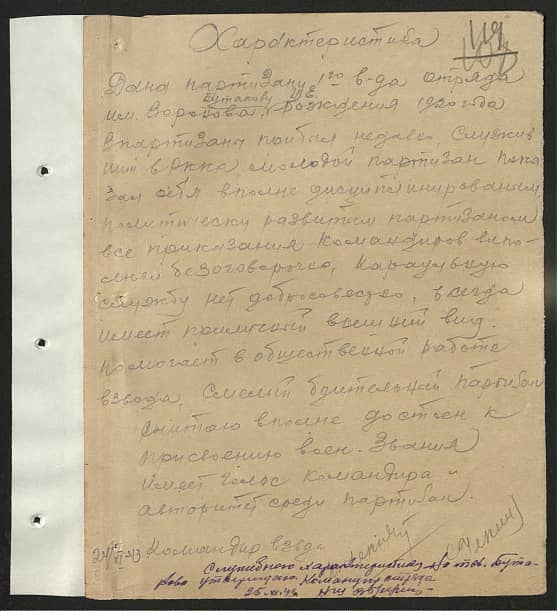 Характеристика
Дана партизану 1го в-да отряда
Бутакову И.Е.
им. Егорова, рождения 1920 года
В партизаны прибыл недавно, служив
ший в Окка молодой партизан пока
зал себя вполне дисциплинированым
политически развитым партизаном
все приказания командиров выпо-
лняет безоговорочно, Караульную
службу нет добросовестно, всегда
имеет приличный внешний вид.
помогает в общественной работе
взвода, смелый бдительный партизан
считаю вполне достоен к
присвоению воен. звания
имеет голос командира и
авторитет среди партизан.
Командир взвода
Служебную характеристику на тов. Бута-
кова утверждаю. Командир отряда